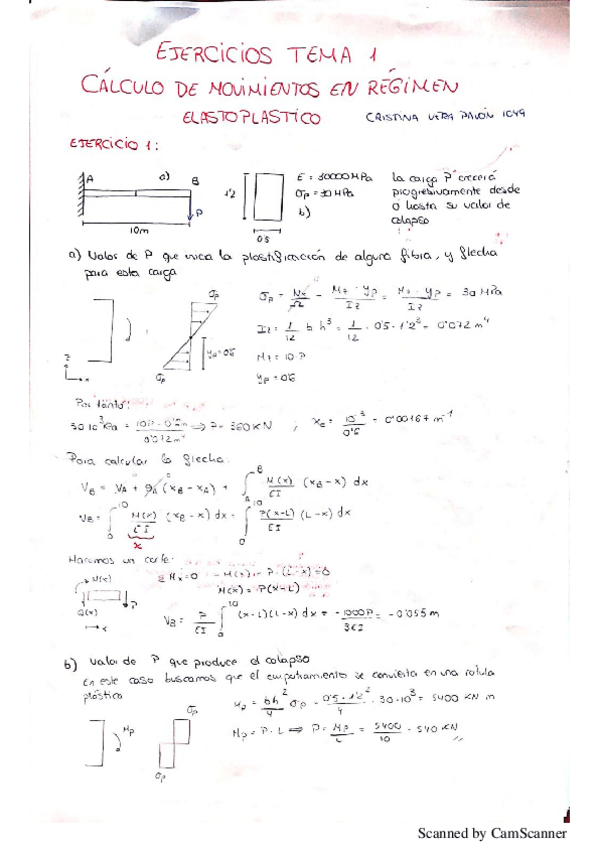 EJERCICIOS TEMA 1
CÁLCULO DE MOVIMIENTOS EN RÉGIMEN
ELASTOPLASTICO
CRISTINA VERA PAVÓN 1C49
EJERCICIO 1:
A a) B
P
10m
1'2
0'5
E = 30000 MPa
σp = 30 MPa
b)
La carga P crecerá
progresivamente desde
0 hasta su valor de
colapso
a) Valor de P que inicia la plastificación de alguna fibra, y flecha
para esta carga
σp
yp=0'6
σp
z
x
σp = Nx/Ω - Mz · yp/Iz = Mz · yp/Iz = 30 MPa
Iz = 1/12 b h³ = 1/12 · 0'5 · 1'2³ = 0'072 m⁴
Mz = 10·P
yp = 0'6
Por tanto:
30·10³ kPa = 10P · 0'6m/0'072m⁴ ⇒ P = 360 KN ; Xe = 10⁻³/0'6 = 0'00167 m⁻¹
Para calcular la flecha:
VB = VA + θA (xB - xA) + ∫AB M(x)/EI (xB - x) dx
VB = ∫010 M(x)/EI (xB - x) dx = ∫010 P(x-L)/EI (L - x) dx
X
Hacemos un corte:
M(x)
Q(x)
P
x
ΣMx=0 -M(x) - P·(L-x)=0
M(x) = P(x-L)
VB = P/EI ∫010 (x-L)(L-x) dx = -1000P/3EI = -0'055 m
b) Valor de P que produce el colapso
En este caso buscamos que el empotramiento se convierta en una rotula
plástica
Mp
σp
σp
Mp = bh²/4 σp = 0'5·1'2²/4 · 30·10³ = 5400 KN m
Mp = P·L ⇒ P = Mp/L = 5400/10 = 540 KN
Scanned by CamScanner